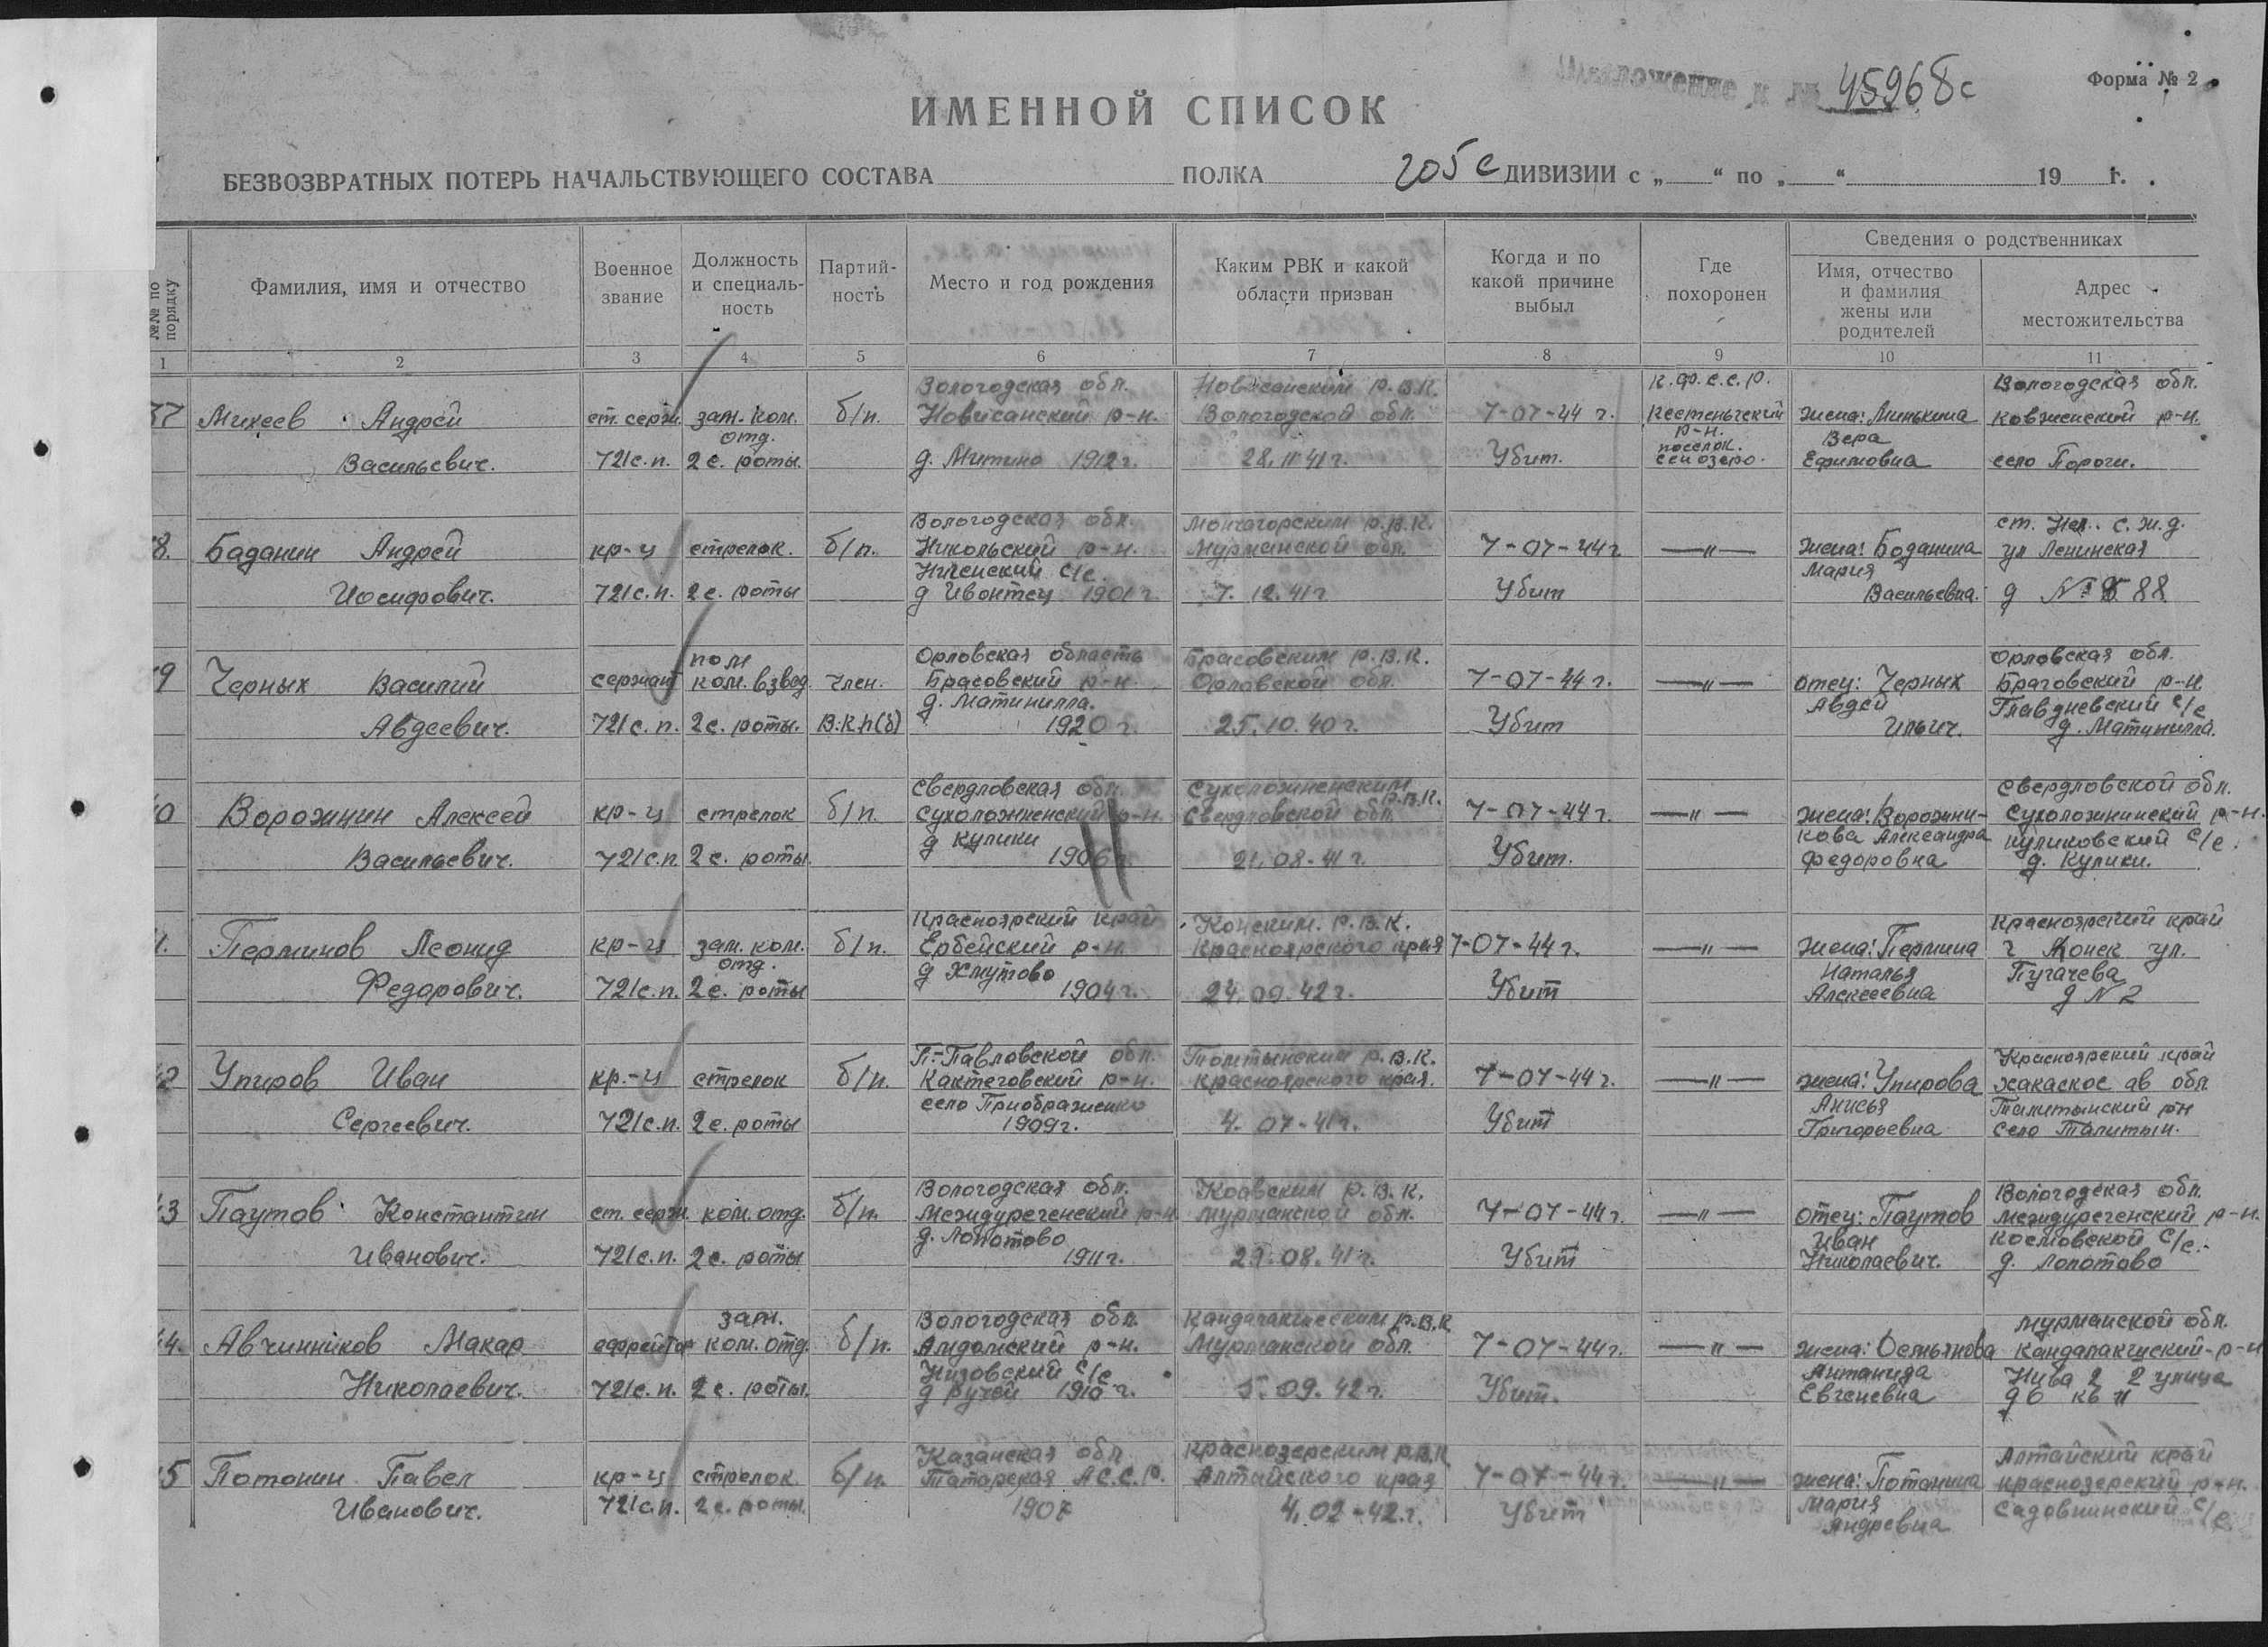 Приложение к № 45968с
Форма № 2
ИМЕННОЙ СПИСОК
БЕЗВОЗВРАТНЫХ ПОТЕРЬ НАЧАЛЬСТВУЮЩЕГО СОСТАВА ПОЛКА 205 с ДИВИЗИИ с „ “ по „ “ 19 г.
№№ по порядку
Фамилия, имя и отчество
Военное звание
Должность и специальность
Партийность
Место и год рождения
Каким РВК и какой области призван
Когда и по какой причине выбыл
Где похоронен
Сведения о родственниках
Имя, отчество и фамилия жены или родителей
Адрес местожительства
1 2 3 4 5 6 7 8 9 10 11
Вологодская обл. к.ф.с.с.р. Вологодская обл.
37 Михеев Андрей ст. серж. зам. ком. б/п. р-н. Вологодской обл. 7-07-44 г. Кестеньгский жена: Минькина Ковженский р-н.
отд. р-н. Вера
поселок.
Васильевич. 721с.п. 2 с. роты. д. Митино 1912 г. 28.11 41 г. Убит. сенозеро. Ефимовна село Пороги.
Вологодская обл. Мончагорским р.в.к. ст. с. ж.д.
8. Баданин Андрей кр-ц стрелок. б/п. Никольский р-н. Мурманской обл. 7-07-44 г —"— жена: Боданина ул Ленинская
с/с. Мария
Иосифович. 721с.п. 2 с. роты д 1901 г. 7. 12. 41 г Убит Васильевна. д № 88
пом Орловская область Брасовским р.в.к. Орловская обл.
9 Черных Василий сержант ком. взвод. член. Брасовский р-н. Орловской обл. 7-07-44 г. —"— отец: Черных р-н.
д. Матинилла. Авдей с/с
Авдеевич. 721с.п. 2 с. роты. В.К.П(б) 1920 г. 25. 10. 40 г. Убит Ильич. д. Матинилла.
Свердловская обл. Сухоложненским Свердловской обл.
р.в.к.
0 Ворожнин Алексей кр-ц стрелок б/п. Сухоложненский р-н Свердловской обл. 7-07-44 г. —"— жена: Ворожни- Сухоложнинский р-н.
д Кулики кова Александра куликовский с/с.
Васильевич. 721с.п 2 с. роты. 1906 г. 21. 08-41 г. Убит. Федоровна д. Кулики.
Красноярский край Конским. р.в.к. Красноярский край
1. Перминов Леонид кр-ц зам. ком. б/п. Ербейский р-н. Красноярского края 7-07-44 г. —"— жена: Пермина г Конск ул.
отд. д Хмутово Наталья Пугачева
Федорович. 721с.п. 2 с. роты 1904 г. 24. 09. 42 г. Убит Алексеевна д № 2
П-Павловской обл. р.в.к. Красноярский край
2 Упиров Иван кр.-ц стрелок б/п. р-н. Красноярского края. 7-07-44 г. —"— жена: Упирова хакаское ав обл
село Приображенка Анисья рн
Сергеевич. 721с.п. 2 с. роты 1909 г. 4. 07-41 г. Убит Григорьевна село
Вологодская обл. р.в.к. Вологодская обл.
3 Паутов Константин ст. серж. ком. отд. б/п. Междуреченский р-н Мурманской обл. 7-07-44 г. —"— отец: Паутов Междуреченский р-н.
д. Лопотово Иван с/с.
Иванович. 721с.п. 2 с. роты 1911 г. 29. 08. 41 г. Убит Николаевич. д. Лопотово
зам. Вологодская обл. р.в.к Мурманской обл.
4. Авчинников Макар ефрейтор ком. отд. б/п. Андомский р-н. Мурманской обл. 7-07-44 г. —"— жена: Кандалакшский р-н
Низовский с/с Антанида Нива 2 2 улица
Николаевич. 721с.п. 2 с. роты. д ручей 1910 г. 5. 09. 42 г. Убит. Евгеневна д 6 кв 11
Казанская обл Краснозерским р.в.к Алтайский край
5 Потонин Павел кр-ц стрелок. б/п. Татарская А.С.С.Р. Алтайского края 7-07-44 г. —"— жена: Потонина Краснозерский р-н.
Иванович. 721с.п. 2 с. роты. 1907 4. 02-42. г. Убит Мария Садовнинский с/с
Андревна